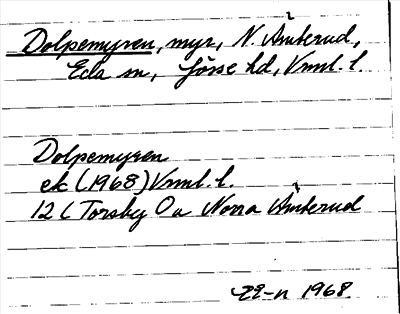 Dolpemyren, myr, N. Åmberud,
Eda sn, Jösse hd, Vrml. l.
Dolpemyren
ek (1968) Vrml. l.
12 C Torsby O a Norra Åmberud
1968